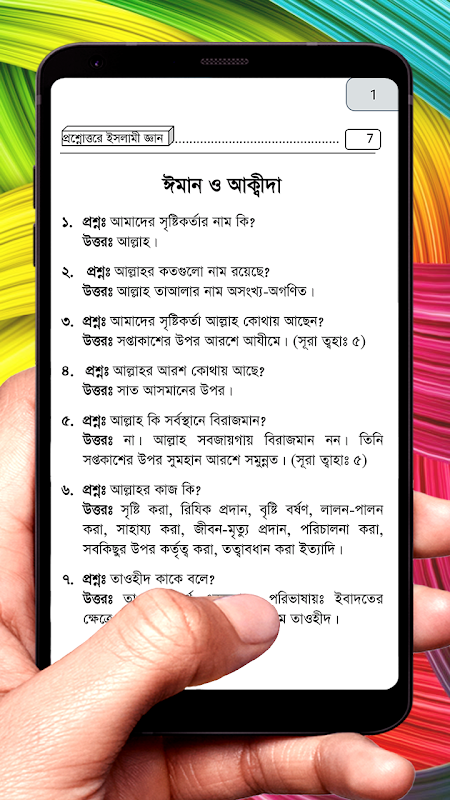 1
প্রশ্নোত্তরে ইসলামী জ্ঞান ................................................ 7
ঈমান ও আক্বীদা
১. প্রশ্নঃ আমাদের সৃষ্টিকর্তার নাম কি?
উত্তরঃ আল্লাহ।
২. প্রশ্নঃ আল্লাহর কতগুলো নাম রয়েছে?
উত্তরঃ আল্লাহ তাআলার নাম অসংখ্য-অগণিত।
৩. প্রশ্নঃ আমাদের সৃষ্টিকর্তা আল্লাহ কোথায় আছেন?
উত্তরঃ সপ্তাকাশের উপর আরশে আযীমে। (সূরা ত্বহাঃ ৫)
৪. প্রশ্নঃ আল্লাহর আরশ কোথায় আছে?
উত্তরঃ সাত আসমানের উপর।
৫. প্রশ্নঃ আল্লাহ কি সর্বস্থানে বিরাজমান?
উত্তরঃ না। আল্লাহ সবজায়গায় বিরাজমান নন। তিনি
সপ্তকাশের উপর সুমহান আরশে সমুন্নত। (সূরা ত্বাহাঃ ৫)
৬. প্রশ্নঃ আল্লাহর কাজ কি?
উত্তরঃ সৃষ্টি করা, রিযিক প্রদান, বৃষ্টি বর্ষণ, লালন-পালন
করা, সাহায্য করা, জীবন-মৃত্যু প্রদান, পরিচালনা করা,
সবকিছুর উপর কর্তৃত্ব করা, তত্বাবধান করা ইত্যাদি।
৭. প্রশ্নঃ তাওহীদ কাকে বলে?
উত্তরঃ পরিভাষায়ঃ ইবাদতের
তাওহীদ।